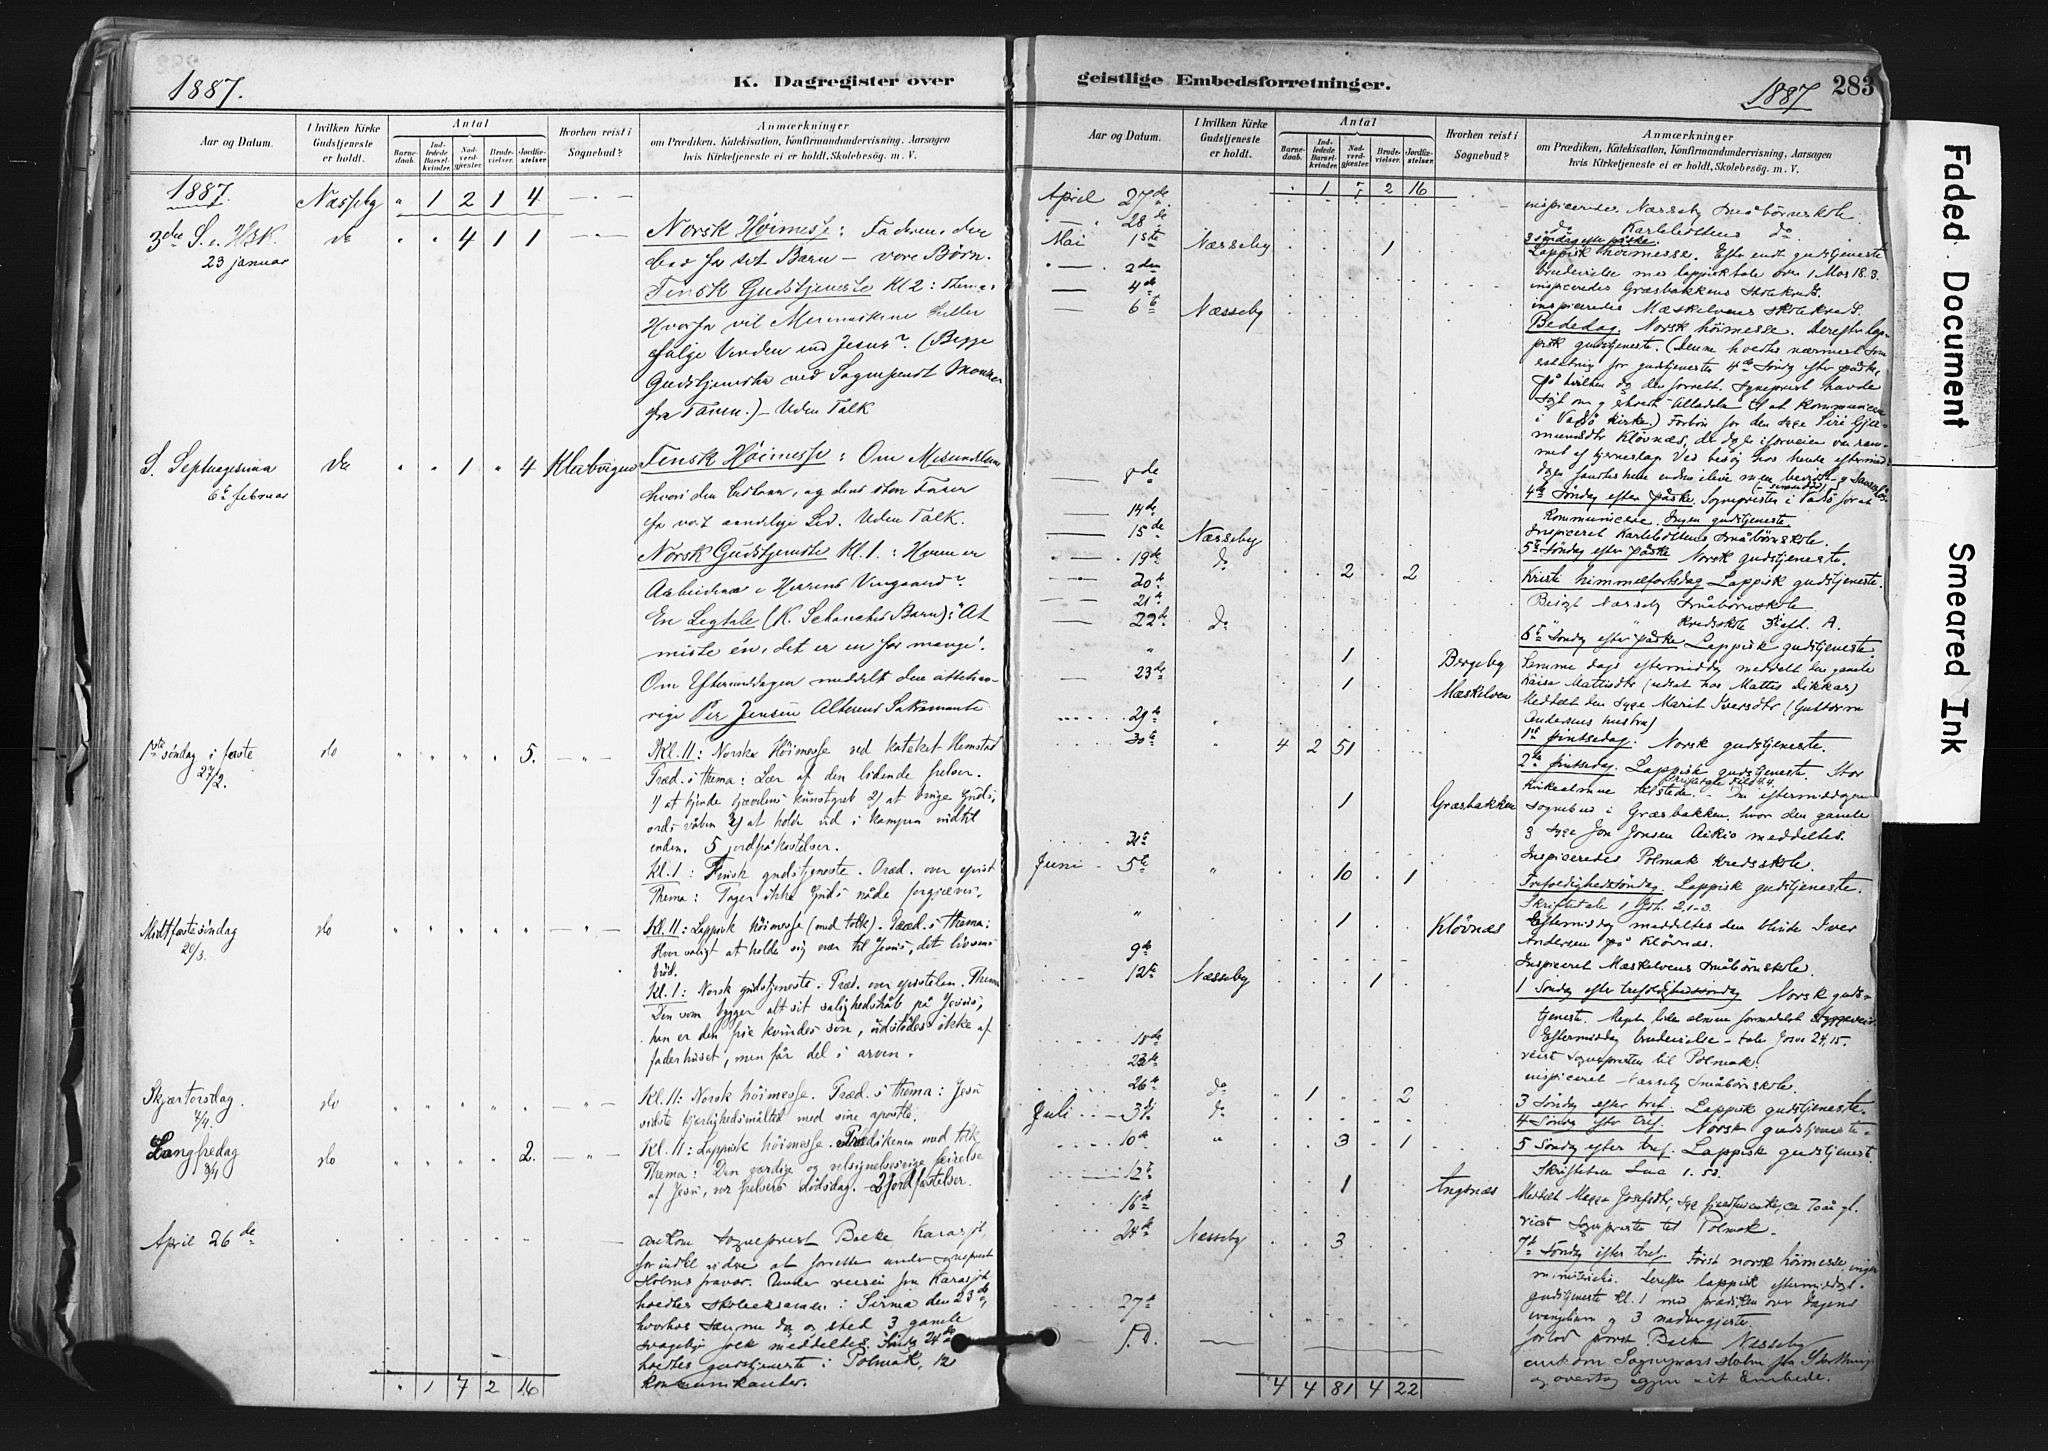 1887.
K. Dagregister over
Aar og Datum.
I hvilken Kirke
Gudstjeneste
er holdt.
Antal
Barne-
daab.
Ind-
ledede
Barsel-
kvinder.
Nad-
verd-
gjester.
Brude-
vielser.
Jordfæ-
stelser.
Hvorhen reist i
Sognebud?
Anmærkninger
om Prædiken, Katekisation, Konfirmandundervisning, Aarsagen
hvis Kirketjeneste ei er holdt, Skolebesøg. m. V.
1887. Næsseby " 1 2 1 4
3die S. e. H3K. do " " 4 1 1 Norsk Høimesse: Faderen, der
23 januar bad for sit Barn — vore Børn.
Finsk Gudstjeneste Kl 2: Thema:
Hvorfor vil Menneskene heller
følge Verden end Jesus? (Begge
Gudstjenester ved Sognepræst
fra Tanen.) — Uden Tolk
S. Septuagesima do " " 1 " 4 Klubvigen Finsk Høimesse: Om Misundelsen
6te februar hvori den bestaar, og dens store Farer
for vort aandelige Liv. Uden Tolk.
Norsk Gudstjeneste Kl. 1: Hvem er
Arbeiderne i Herrens Vingaard?
En Ligtale (K. Schanches Barn): "At
miste én, det er en for mange".
Om Eftermiddagen meddelt den
Per Jensen Alterens Sakramente
1ste søndag i faste do " " " " 5. Kl. 11: Norsk Høimesse ved kateket Hemstad
27/2. Præd. s thema: Lær af den lidende frelser.
1) at kjende djævelens kunstgreb 2) at bruge Guds
ords våben 3) at holde ud i kampen indtil
enden. 5 jordpåkastelser.
Kl. 1: Finsk gudstjeneste. Præd. over epist
Thema: Tager ikke Guds nåde forgjæves.
Midtfastesöndag do " " " " " Kl. 11: Lappisk høimesse (med tolk). Præd. s thema:
20/3. Hvor saligt at holde sig nær til Jesus, det livsens
brød.
Kl. 1: Norsk gudstjeneste. Præd. over epistelen. Thema
Den som bygger alt sit salighedshåb på Jesus,
han er den frie kvindes søn, udstødes ikke af
faderhuset, men får del i arven.
Skjærtorsdag. do " " " " " Kl. 11: Norsk høimesse. Præd. s thema: Jesu
7/4. sidste kjærlighedsmåltid med sine apostle.
Langfredag do " " " " 2. Kl. 11: Lappisk høimesse. Prædikenen med tolk
8/4 Thema: Den værdige og velsignelsesrige feirelse
af Jesu, vor frelsers dødsdag. 2 jordfæstelser.
April 26 de ankom sogneprest Balke, Karasjok,
for indtil videre at forrette under sogneprest
Holms fravær. Under reisen fra Karasjok
holdtes skoleeksamen i Sirma den 23 de,
hvorhos samme dag og sted 3 gamle
svagelige folk meddeltes. Sönd. 24de
holdtes gudstjeneste i Polmak, 12
kommunikanter.
" 1 7 2 16
geistlige Embedsforretninger.
1887
283
Aar og Datum.
I hvilken Kirke
Gudstjeneste
er holdt.
Antal
Barne-
daab.
Ind-
ledede
Barsel-
kvinder.
Nad-
verd-
gjester.
Brude-
vielser.
Jordfæ-
stelser.
Hvorhen reist i
Sognebud?
Anmærkninger
om Prædiken, Katekisation, Konfirmandundervisning, Aarsagen
hvis Kirketjeneste ei er holdt, Skolebesøg. m. V.
. 1 7 2 16
April 27de inspiceredes Næsseby Småbørnskole.
28de do Karlebottens do
Mai 1ste Næsseby 1 3 söndag efter påske
Lappisk høimesse. Efter endt gudstjeneste
brudevielse med lappisk tale over 1 Mos 18.3.
2den inspiceredes Græsbakkens Skolekreds.
4de inspiceredes Mæskelvens skolekreds.
6te Næsseby Bededag. Norsk høimesse. Derefter lap-
pisk gudstjeneste. (Denne holdtes nærmest som
erstatning for gudstjeneste 4de Sönd. efter påske,
på hvilken dag den forrett. sogneprest havde
søgt om og erholdt tilladelse til at kommunicere
i Vadsø kirke.) Forbön for den syge Siri
Kløvnæs,
8de 4de Söndag efter påske Sognepresten i Vadsö for at
kommunicere. Ingen gudstjeneste.
14de Inspiceret Karlebottens Småbørnskole.
15de Næsseby 5te Söndag efter påske Norsk gudstjeneste.
19de do 2 2 Kristi himmelfartsdag Lappisk gudstjeneste.
20de Besøgt Næsseby Småbørnskole
21de Kredsskole 3die afd. A.
22de do 6te Söndag efter påske Lappisk gudstjeneste.
" 1 Bergeby Samme dags eftermiddag meddelt den gamle
Kaisa Mattisdtr
23de 1 Mæskelven Meddelt den syge Marit Iversdtr (Guttorm
Andersens hustru)
29de " 1ste pintsedag. Norsk gudstjeneste.
30te " 4 2 51 2den pintsedag. Lappisk gudstjeneste. Stor
kirkealmue tilstede. — Om eftermiddagen
1 Græsbakken sognebud i Græsbakken, hvor den gamle
syge Jon Jonsen Aikio meddeltes.
31te Inspiceredes Polmak kredsskole.
Juni 5te " 10 1 Trefoldighedssöndag. Lappisk gudstjeneste.
Skriftetale 1 Joh. 2.1-3.
" 1 Kløvnæs Eftermiddag meddeltes den blinde Iver
Andersen på Kløvnæs.
9de Inspiceret Mæskelvens Småbørnskole.
12te Næsseby 1 1 Söndag efter trefoldighedssöndag Norsk guds-
tjeneste. Meget liden almue formedelst
Eftermiddag brudevielse — tale Josva 24,15.
18de reist sognepresten til Polmak.
23de inspiceret Næsseby Småbørnskole.
26de do " 1 2 3 Söndag efter tref. Lappisk gudstjeneste.
Juli 3die do 4 Söndag eftr tref. Norsk gudstjeneste.
10de " 3 1 5 Söndag efter tref. Lappisk gudstjeneste.
Skriftetale Luc 1.53.
12te 1 Angsnæs Meddelt
16de reist Sognepresten til Polmak.
24de Næsseby 3 7de Söndag efter tref. Først norsk høimesse, ingen
ministerielle. Derefter lappisk eftermiddags-
gudstjeneste kl. 1 med prædiken over dagens
evangelium og 3 nadvergjester.
27de forlod prest Balke Næsseby
S.D. ankom Sognepræst Holm fra Storthinget
og overtog igjen sit Embede.
4 4 81 4 22
Faded Document Smeared Ink